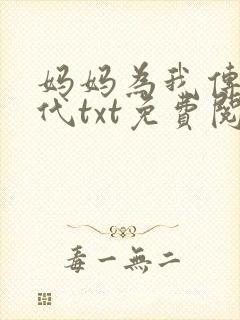 妈妈為我傳
代txt免費閱
毒一無二